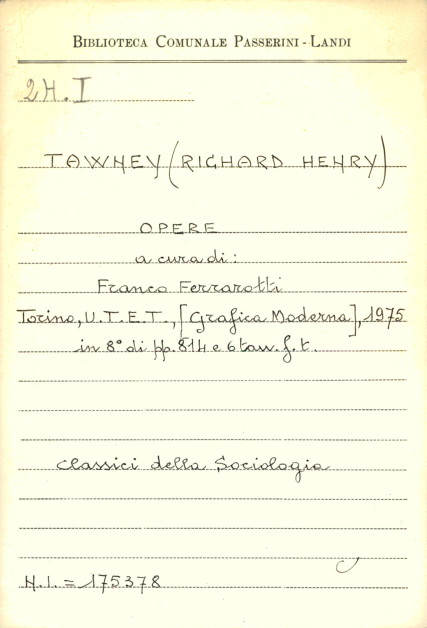 BIBLIOTECA COMUNALE PASSERINI - LANDI
2H.I
TAWNEY (RICHARD HENRY)
OPERE
a cura di:
Franco Ferrarotti
Torino, U.T.E.T., [Grafica Moderna], 1975
in 8° di pp. 814 e 6 tav. f. t.
classici della Sociologia
N.I. = 175378